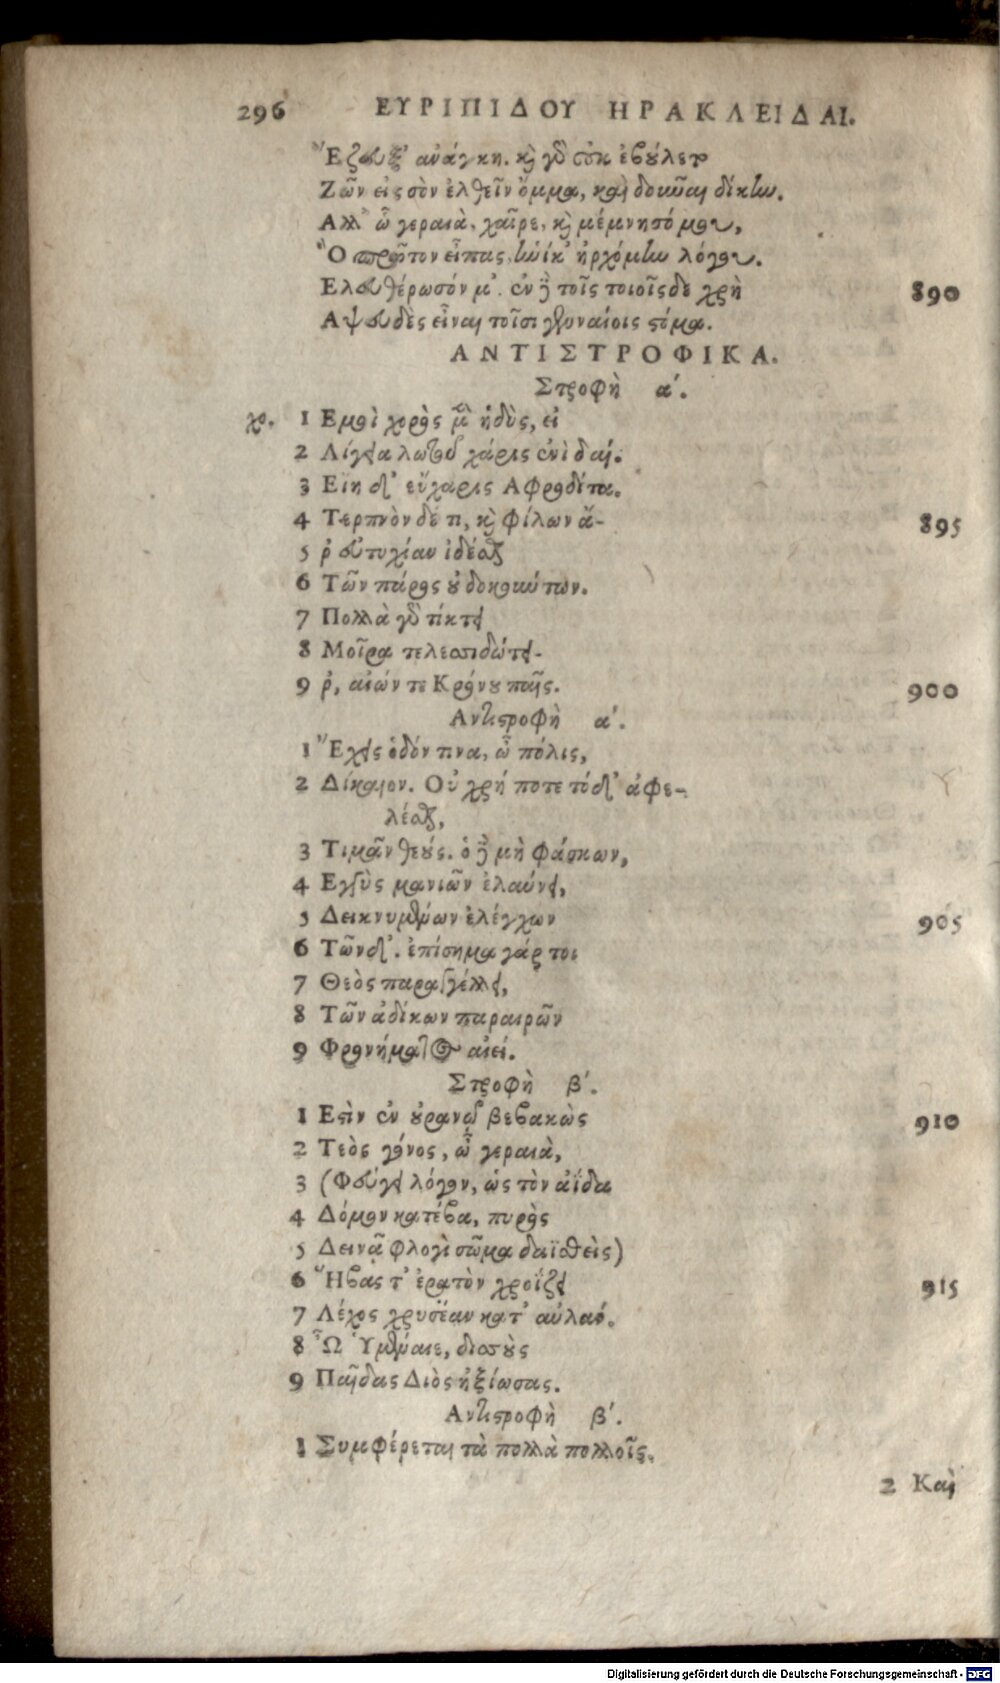 296 ΕΥΡΙΠΙΔΟΥ ΗΡΑΚΛΕΙΔΑΙ.
Ἔζευξ' ἀνάγκη. καὶ γὰρ οὐκ ἐβούλετο
Ζῶν εἰς σὸν ἐλθεῖν ὄμμα, καὶ δοῦναι δίκην.
Αλλ' ὦ γεραιὰ, χαῖρε, καὶ μέμνησό μου,
Ὃ πρῶτον εἶπας, ἡνίκ' ἠρχόμην λόγου.
Ελευθέρωσόν μ'. ἐν δὲ τοῖς τοιοῖσδε χρὴ 890
Αψευδὲς εἶναι τοῖσι γενναίοις στόμα.
ΑΝΤΙΣΤΡΟΦΙΚΑ.
Στροφὴ α'.
χο. 1 Εμοὶ χορὸς μὲν ἡδὺς, εἰ
2 Λίγεια λωτοῦ χάρις ἐνὶ δαί.
3 Εἴη δ' εὔχαρις Αφροδίτα.
4 Τερπνὸν δέ τι, καὶ φίλων ἄ- 895
5 ρ' εὐτυχίαν ἰδέσθαι
6 Τῶν πάρος οὐ δοκούντων.
7 Πολλὰ γὰρ τίκτει
8 Μοῖρα τελεσσιδώτει-
9 ρ', αἰών τε Κρόνου παῖς. 900
Αντιστροφὴ α'.
1 Ἔχεις ὁδόν τινα, ὦ πόλις,
2 Δίκαιον. Οὐ χρή ποτε τόδ' ἀφε-
λέσθαι,
3 Τιμᾶν θεούς. ὁ δὲ μὴ φάσκων,
4 Εγγὺς μανιῶν ἐλαύνει,
5 Δεικνυμένων ἐλέγχων 905
6 Τῶνδ'. ἐπίσημα γάρ τοι
7 Θεὸς παραγγέλλει,
8 Τῶν ἀδίκων παραιρῶν
9 Φρονήματος αἰεί.
Στροφὴ β'.
1 Εστὶν ἐν οὐρανῷ βεβακὼς 910
2 Τεὸς γόνος, ὦ γεραιὰ,
3 (Φεύγει λόγον, ὡς τὸν ἀΐδα
4 Δόμον κατέβα, πυρὸς
5 Δεινᾷ φλογὶ σῶμα δαϊσθεὶς)
6 Ἥβας τ' ἐρατὸν χροΐζει 915
7 Λέχος χρυσέαν κατ' αὐλάν.
8 Ὦ Ὑμέναιε, δισσοὺς
9 Παῖδας Διὸς ἠξίωσας.
Αντιστροφὴ β'.
1 Συμφέρεται τὰ πολλὰ πολλοῖς.
2 Καὶ
Digitalisierung gefördert durch die Deutsche Forschungsgemeinschaft - DFG